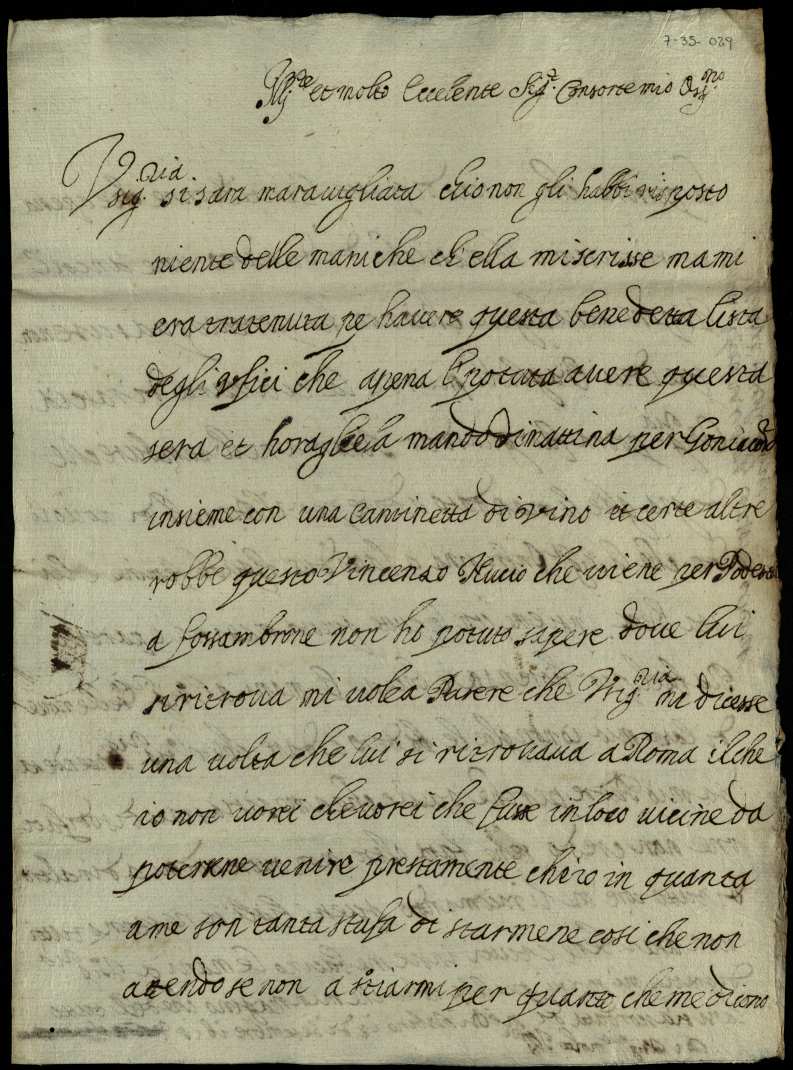 7-35-029
et molto Eccelente Sig.r Consorte mio Oss.mo
V sig.ria si sara maravigliata ch'io non gli habbi risposto
niente delle maniche ch'ella mi scrisse ma mi
era tratenuta pe havere questa benedetta lista
degli ufici che apena l'potuta avere questa
sera et hora gliela mando dimattina per
insieme con una cantinetta di vino et certe altre
robbe questo Vincenzo che viene per Podesta
a fossambrone non ho potuto sapere dove lui
si ritrova mi volea Parere che V sig.ria mi dicesse
una volta che lui si ritrovava a Roma il che
io non vorei che vorei che fusse in loco vicine da
poterene venire prestamente ch'io in quanta
a me son tanta stufa di starmene cosi che non
atendo se non a per quanto che me dicono